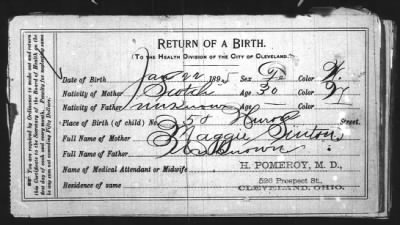 RETURN OF A BIRTH.
(TO THE HEALTH DIVISION OF THE CITY OF CLEVELAND.)
Date of Birth Jan 22 1895 Sex Color W.
Nativity of Mother Scotch Age 30 Color W
Nativity of Father unknown Age — Color
Place of Birth (of child) No. 50 Huron Street.
Full Name of Mother Maggie Sinton
Full Name of Father Unknown
Name of Medical Attendant or Midwife H. POMEROY, M. D.,
Residence of same 526 Prospect St., CLEVELAND, OHIO.
NOTE: You are required by Ordinance to make out and return
this Certificate to the Secretary of the Board of Health on the
first day of each week and every month. Penalty for neglecting same
is any sum not exceeding Fifty Dollars.